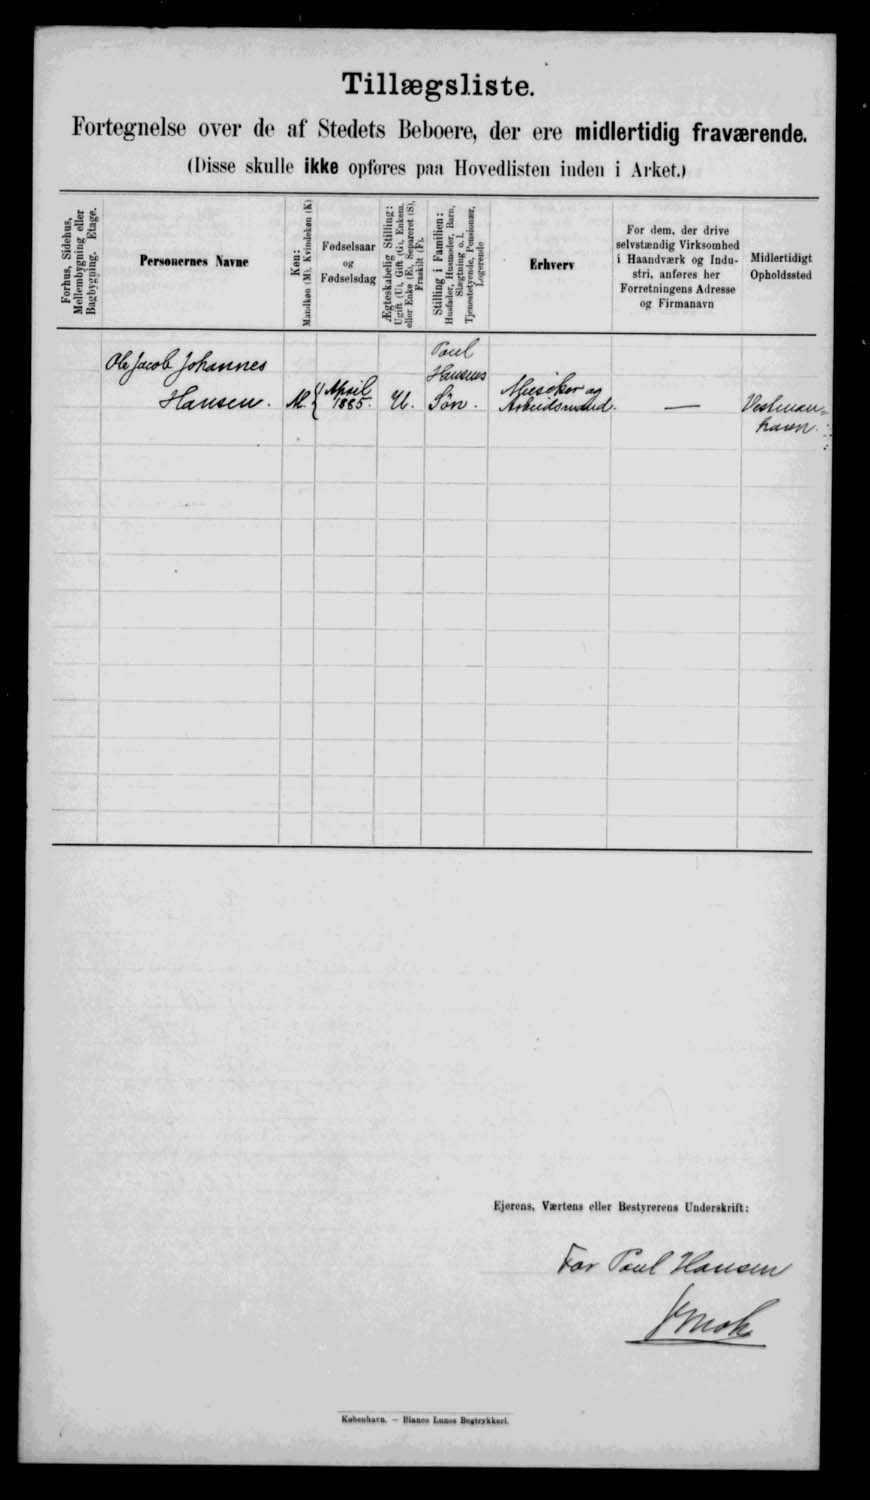 Tillægsliste.
Fortegnelse over de af Stedets Beboere, der ere midlertidig fraværende.
(Disse skulle ikke opføres paa Hovedlisten inden i Arket.)
Forhus, Sidehus,
Mellembygning eller
Bagbygning. Etage.
Personernes Navne
Køn:
Mandkøn (M), Kvindekøn (K)
Fødselsaar
og
Fødselsdag
Ægteskabelig Stilling:
Ugift (U), Gift (G), Enkem.
eller Enke (E), Separeret (S),
Fraskilt (F).
Stilling i Familien:
Husfader, Husmoder, Barn,
Slægtning o. l.
Tjenestetyende, Pensionær,
Logerende
Erhverv
For dem, der drive
selvstændig Virksomhed
i Haandværk og Indu-
stri, anføres her
Forretningens Adresse
og Firmanavn
Midlertidigt
Opholdssted
Ole Jacob Johannes
Hansen.
M.
April
1885.
U.
Poul
Hansens
Søn.
og
Arbeidsmand.
—
Vestman-
havn.
Ejerens, Værtens eller Bestyrerens Underskrift:
For Poul Hansen
København. — Bianco Lunos Bogtrykkeri.